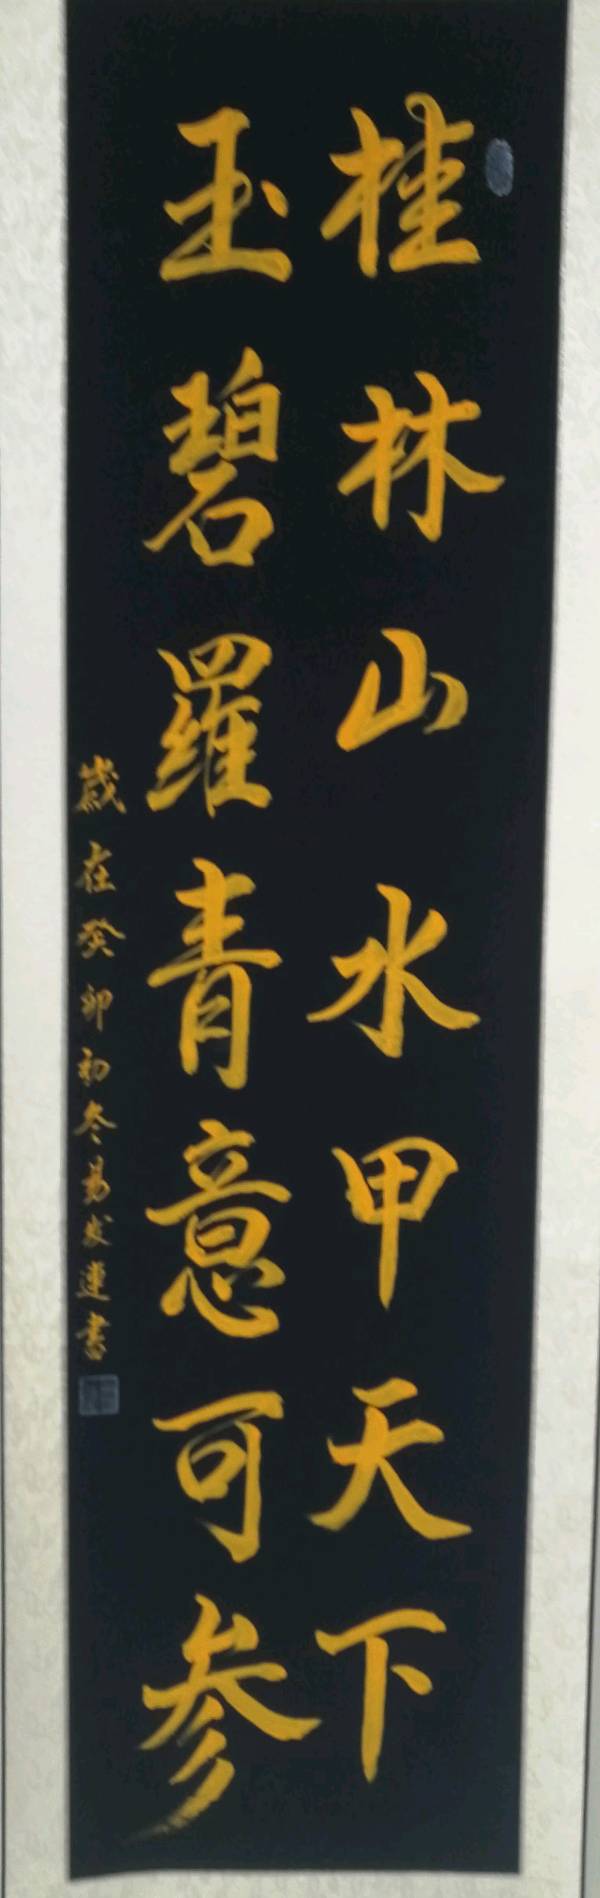 桂林山水甲天下
玉碧羅青意可参
歲在癸卯初冬易发連書